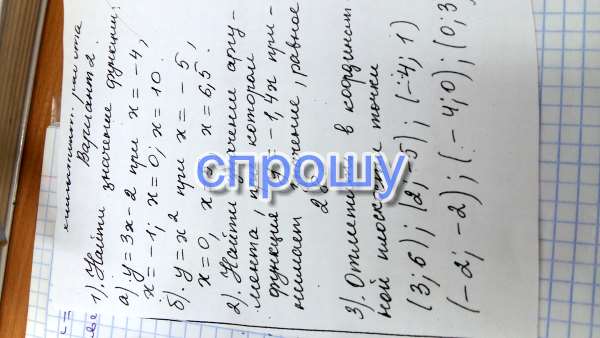 Вариант 2.
1). Найти значение функции:
а) y = 3x - 2 при x = -4,
x = -1; x = 0; x = 10.
б). y = x² при x = -5,
x = 0, x = 6,5.
2). Найти значение аргу-
мента, при котором
функция y = -1,4x при-
нимает значение, равное
3). Отметить в координат
ной плоскости точки
(3; 6); (2; -5); (-4; 1)
(-2; -2); (-4; 0); (0; 3
спрошу